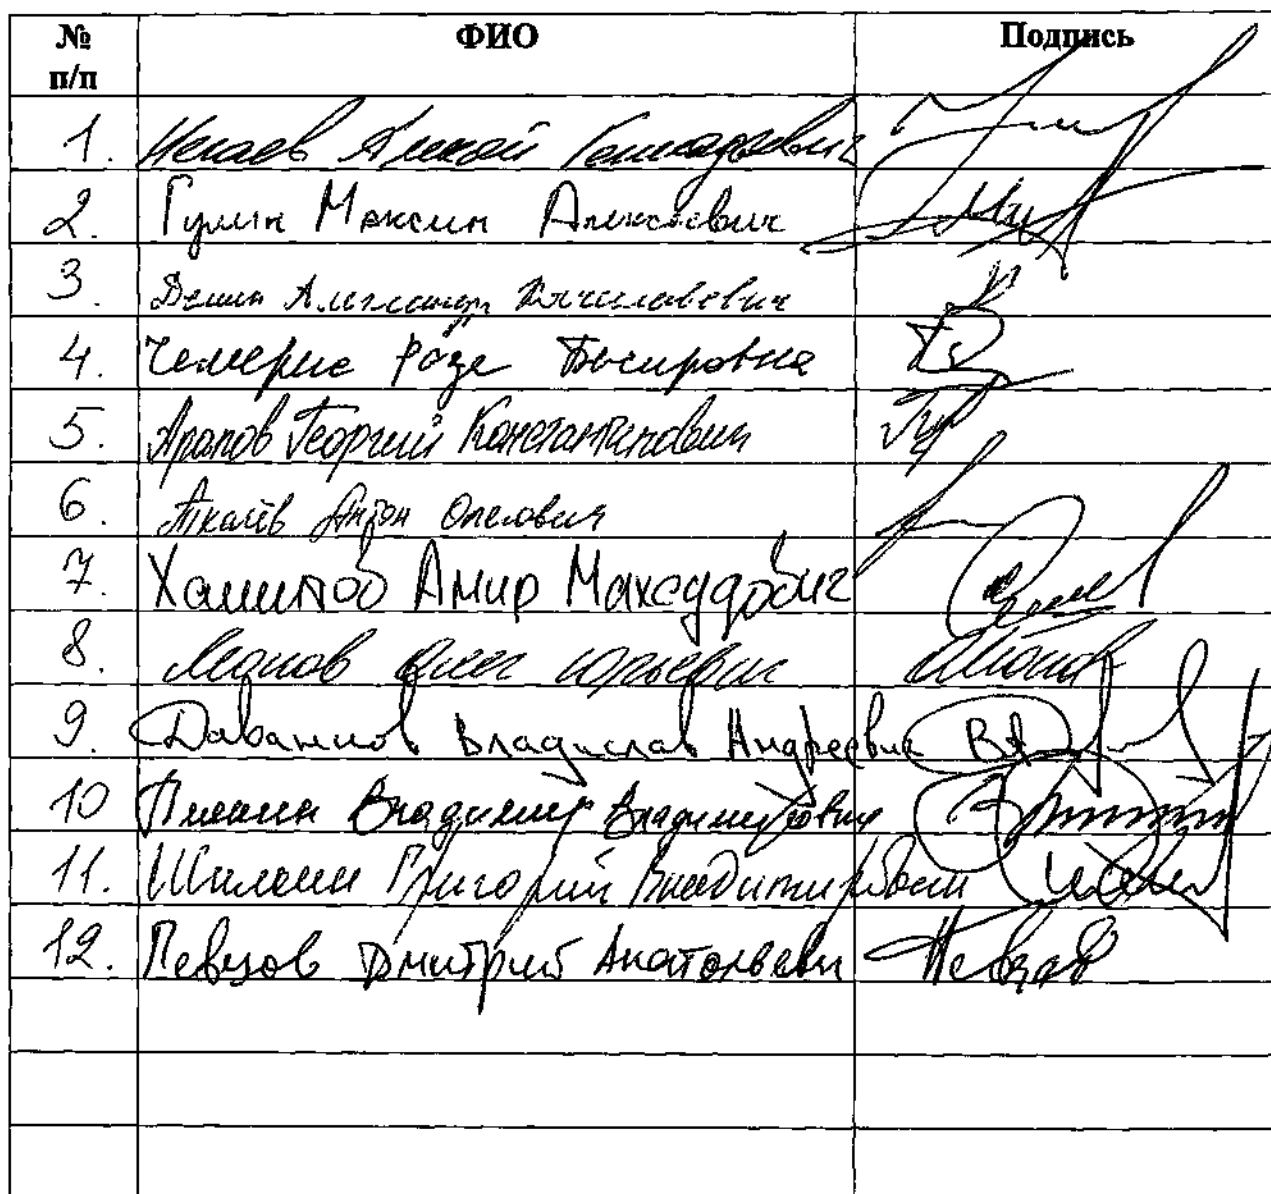 № п/п ФИО Подпись
1. Нечаев Алексей Геннадьевич
2. Гулин Максим Алексеевич
3. Демин Александр Вячеславович
4. Чемерис Роза Басировна
5. Арапов Георгий Константинович
6. Ткачёв Антон Олегович
7. Хамитов Амир Махсудович
8. Леонов Олег Юрьевич
9. Даванков Владислав Андреевич ВД
10 Владимир Владимирович
11. Григорий Владимирович
12. Певцов Дмитрий Анатольевич Певцов